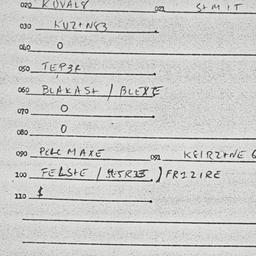 020 KUVAL8 021 S+MIT
030 KUZ+N83
040 0
050 TEP3R
060 BLAKAS+ / BLEXE
070 0
080 0
090 MAXE 091 K8IRZ+NE
100 FELS+E / ) FRIZIRE
110 $